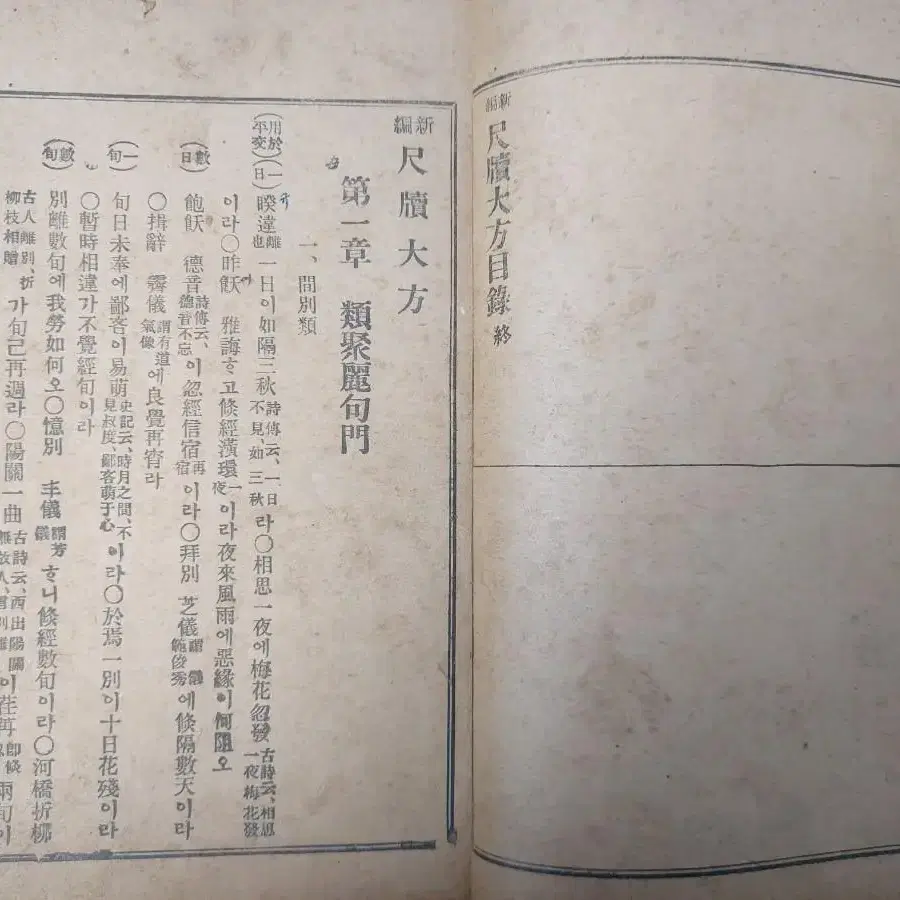 新編 尺牘大方目錄 終
新編 尺牘大方
第一章 類聚麗句門
一、間別類
(用於平交)(一日)暌違離也一日이如隔三秋詩傳云、一日不見、如三秋라〇相思一夜에梅花忽發古詩云、相思一夜梅花發
이라〇昨飫 雅誨ᄒᆞ고倏經漢環一夜이라夜來風雨에惡緣이何阻오
(數日)飽飫 德音詩傳云、德音不忘이忽經信宿再宿이라〇拜別 芝儀에倏隔數天이라
〇揖辭 霽儀謂有道氣像에良覺再宵라
(一旬)旬日未奉에鄙吝이易萌史記云、時月之間、不見叔度、鄙吝萌于心이라〇於焉一別이十日花殘이라
〇暫時相違가不覺經旬이라
(數旬)別離數旬에我勞如何오〇憶別 丰儀謂芳儀ᄒᆞ니倏經數旬이라〇河橋折柳
古人離別、折柳枝相贈가旬已再過라〇陽關一曲古詩云、西出陽關이荏苒兩旬이